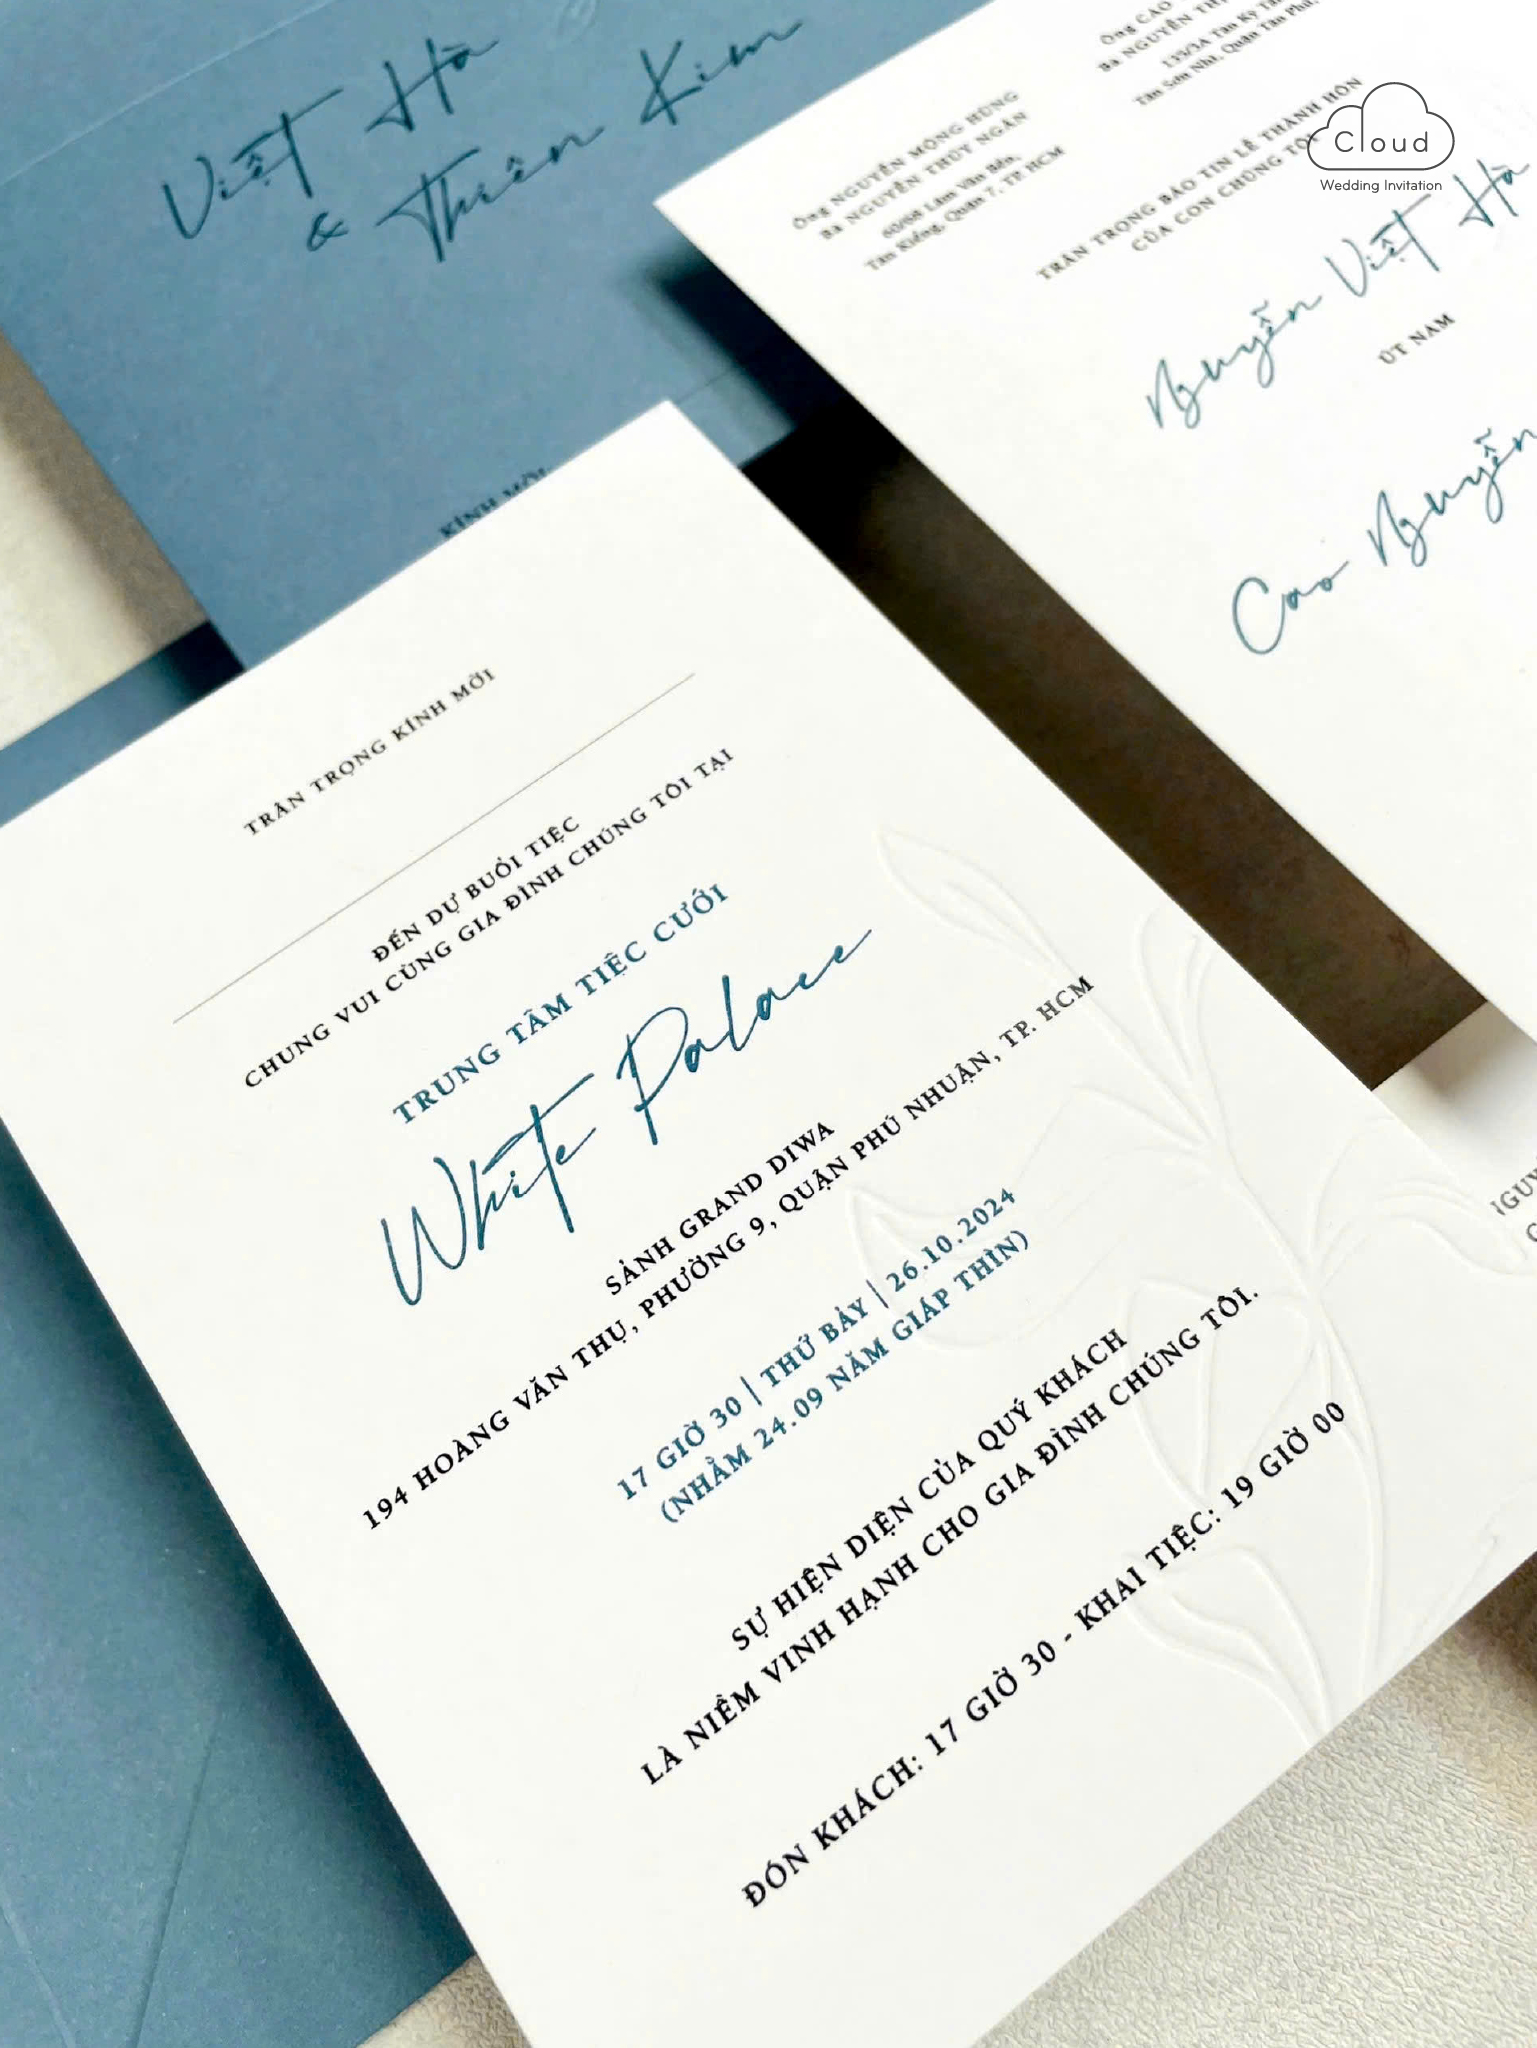 Việt Hà
& Thiên Kim
KÍNH MỜI
Ông CAO
Bà NGUYỄN
Tân Sơn Nhì, Quận Tân Phú,
Ông NGUYỄN MỘNG HÙNG
Bà NGUYỄN THÚY NGÂN
60/68 Lâm Văn Bền,
Tân Kiểng, Quận 7, TP. HCM
TRÂN TRỌNG BÁO TIN LỄ THÀNH HÔN
CỦA CON CHÚNG TÔI
Nguyễn Việt Hà
ÚT NAM
Cao Nguyễn
Cloud
Wedding Invitation
TRÂN TRỌNG KÍNH MỜI
ĐẾN DỰ BUỔI TIỆC
CHUNG VUI CÙNG GIA ĐÌNH CHÚNG TÔI TẠI
TRUNG TÂM TIỆC CƯỚI
White Palace
SẢNH GRAND DIWA
194 HOÀNG VĂN THỤ, PHƯỜNG 9, QUẬN PHÚ NHUẬN, TP. HCM
17 GIỜ 30 | THỨ BẢY | 26.10.2024
(NHẰM 24.09 NĂM GIÁP THÌN)
SỰ HIỆN DIỆN CỦA QUÝ KHÁCH
LÀ NIỀM VINH HẠNH CHO GIA ĐÌNH CHÚNG TÔI.
ĐÓN KHÁCH: 17 GIỜ 30 - KHAI TIỆC: 19 GIỜ 00